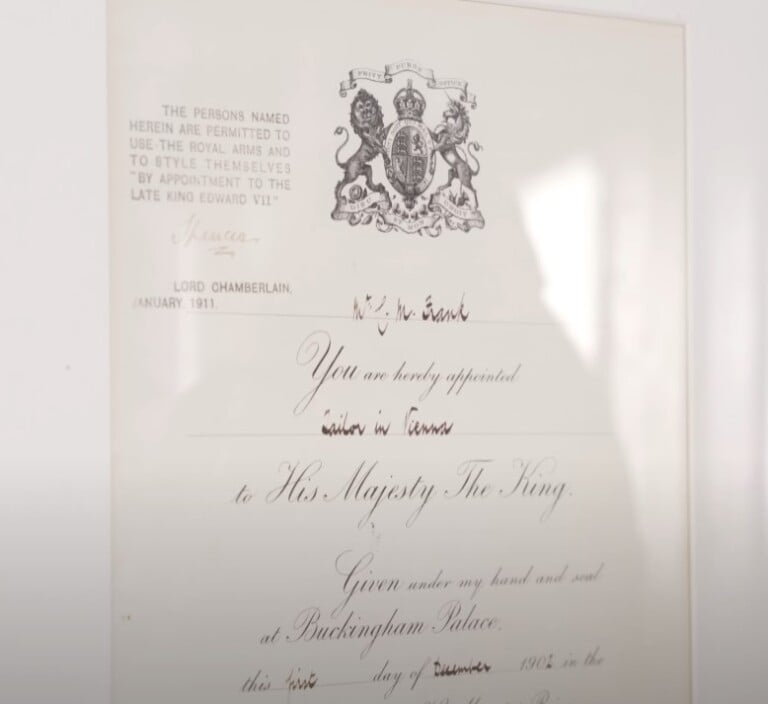 THE PERSONS NAMED
HEREIN ARE PERMITTED TO
USE THE ROYAL ARMS AND
TO STYLE THEMSELVES
"BY APPOINTMENT TO THE
LATE KING EDWARD VII"
Spencer
LORD CHAMBERLAIN.
JANUARY, 1911.
DIEU ET MON DROIT
Mr C. M. Frank
You are hereby appointed
Tailor in Vienna
to His Majesty The King.
Given under my hand and seal
at Buckingham Palace,
this first day of December 1902 in the